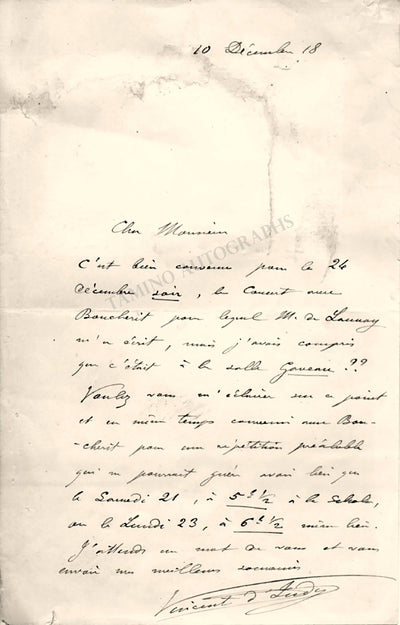 10 Décembre 18
Cher Monsieur
C'est bien convenu pour le 24
décembre soir, le Concert avec
Boucherit pour lequel M. de Launay
m'a écrit, mais j'avais compris
que c'était à la salle Gaveau ??
Voulez vous m'éclairer sur ce point
et en même temps convenir avec Bou-
-cherit pour une répétition préalable
qui ne pourrait guère avoir lieu que
le Samedi 21, à 5h ½ à la Schola,
ou le Lundi 23, à 6h ½ même lieu.
J'attends un mot de vous et vous
envoie mes meilleurs souvenirs
Vincent d'Indy
TAMINO AUTOGRAPHS